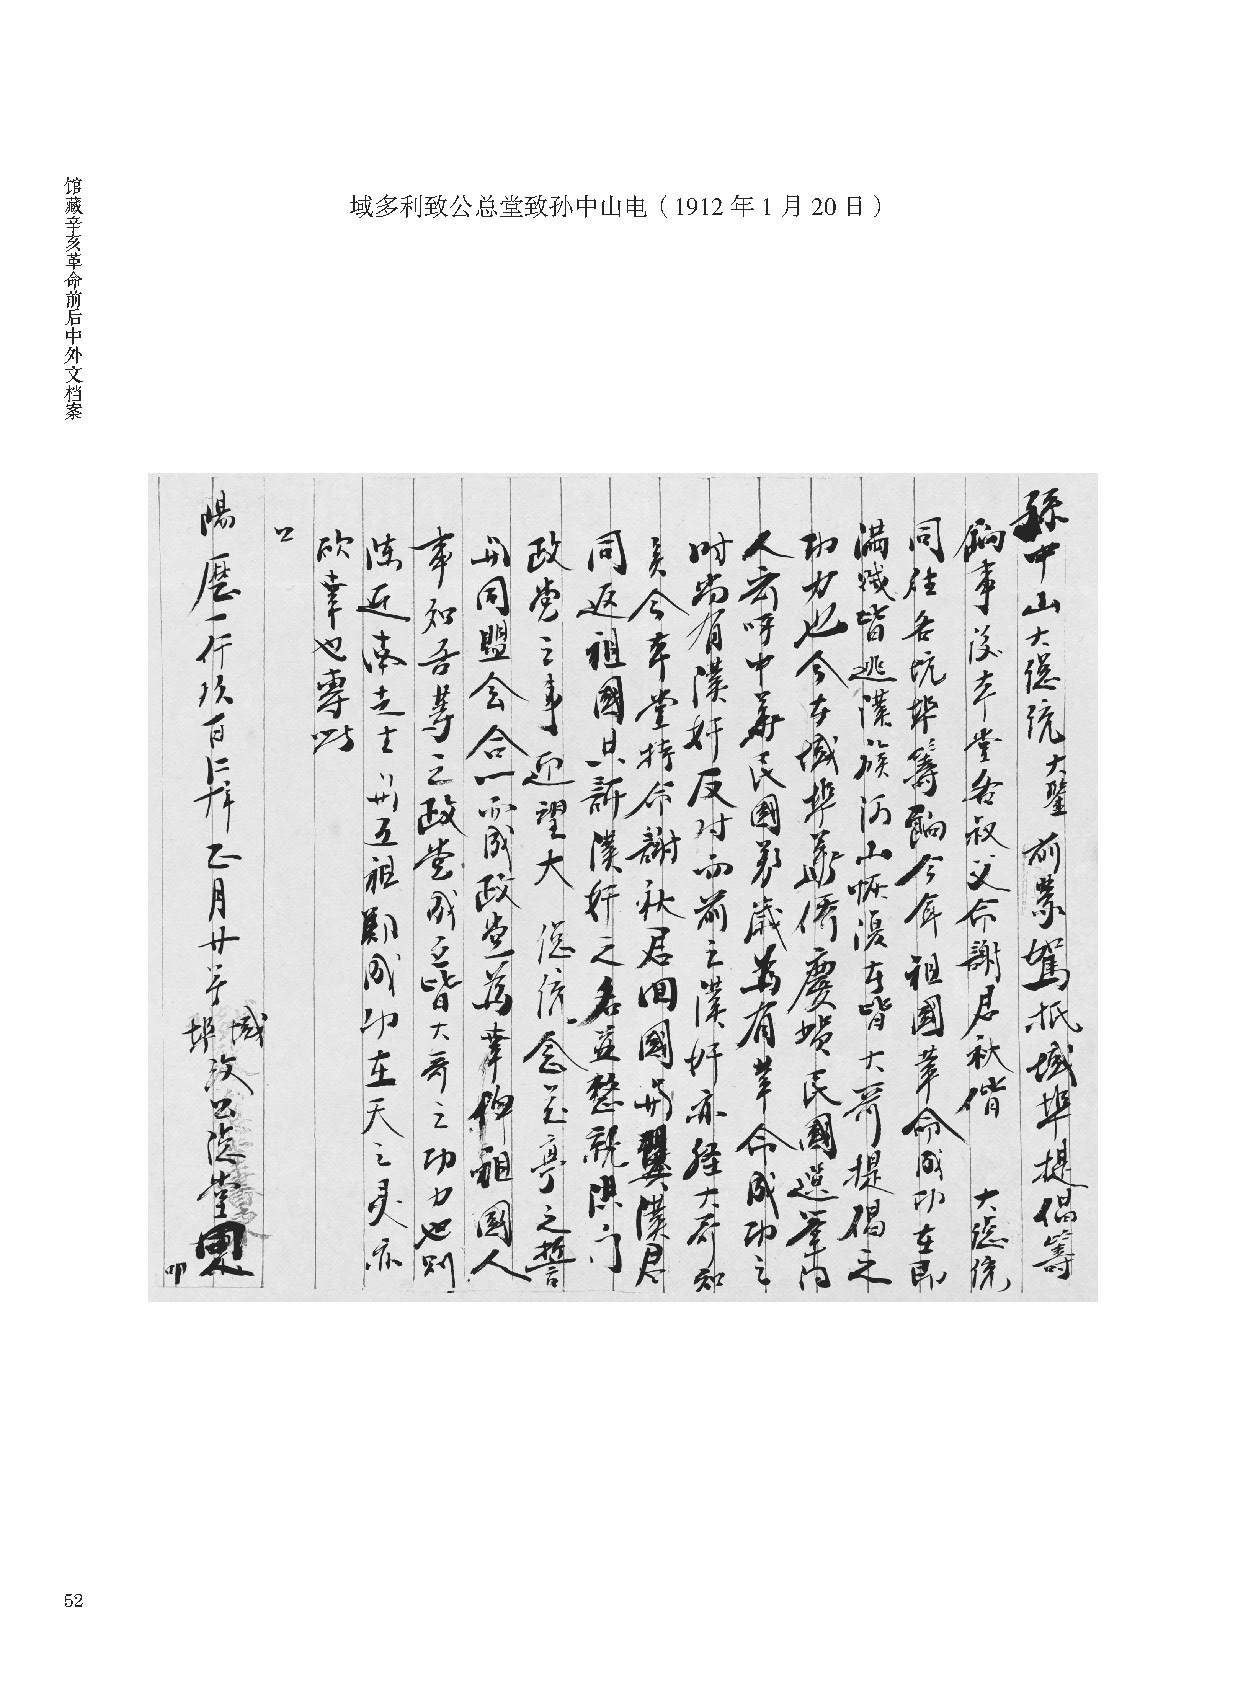 馆藏辛亥革命前后中外文档案
域多利致公总堂致孙中山电（1912 年 1 月 20 日）
孫中山大總统大鑒前蒙駕抵域埠提倡籌
餉事後本堂各叔父命謝君秋偕 大總统
同往各坑埠籌餉今年祖國革命成功在即
满贼皆逃漢族河山恢復本皆大哥提倡之
功力也今本域埠華僑慶祝民國選举内
人云呼中華民國萬歲為有革命成功之
时尚有漢奸反对而前之漢奸亦经大哥知
矣今本堂持命謝秋君回國与翼漢君
同返祖國共訴漢奸之名並整新洪门
政党之事迎望大 總统念花亭之誓
与同盟会合一而成政党為華僑祖國人
事知吾等之政党成立皆大哥之功力也则
陈近南先生与五祖鄭成功在天之灵亦
欣幸也專此
公
陽歷一仟玖百一十二年正月廿号域埠致公總堂 叩
52